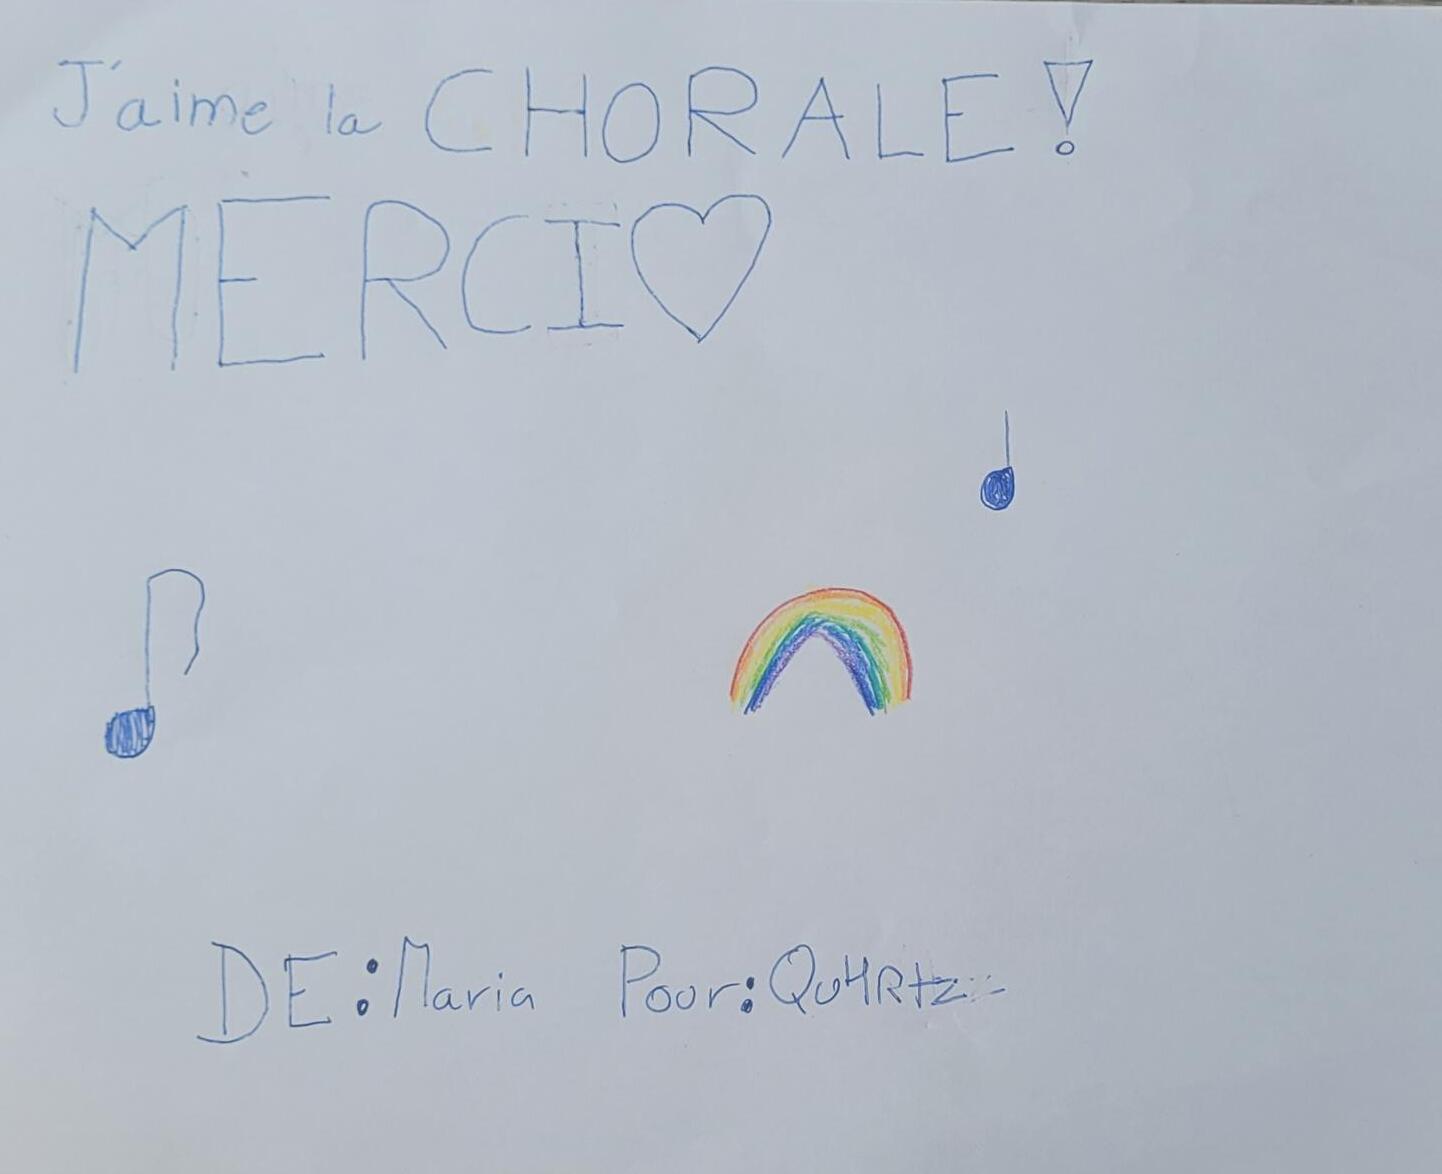 J'aime la CHORALE!
MERCI♡
DE: Maria Pour: QuARtz